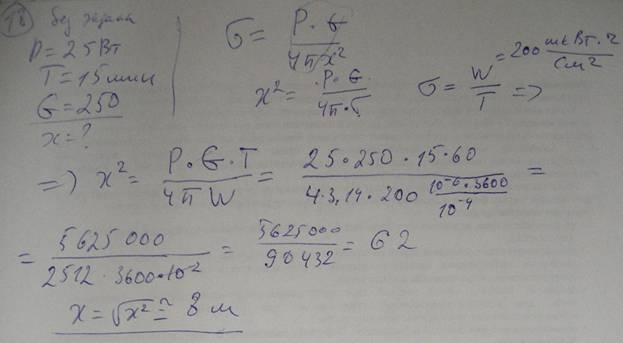 18 без экрана
P = 25 Вт
T = 15 мин
G = 250
x = ?
σ = P · G / 4πx²
x² = P · G / 4π · σ
σ = W / T =>
= 200 мкВт · ч / см²
=> x² = P · G · T / 4π W = 25 · 250 · 15 · 60 / 4 · 3,14 · 200 10⁻⁶ · 3600 / 10⁻⁴ =
= 5625000 / 2512 · 3600 · 10⁻² = 5625000 / 90432 = 62
x = √x² ≅ 8 м